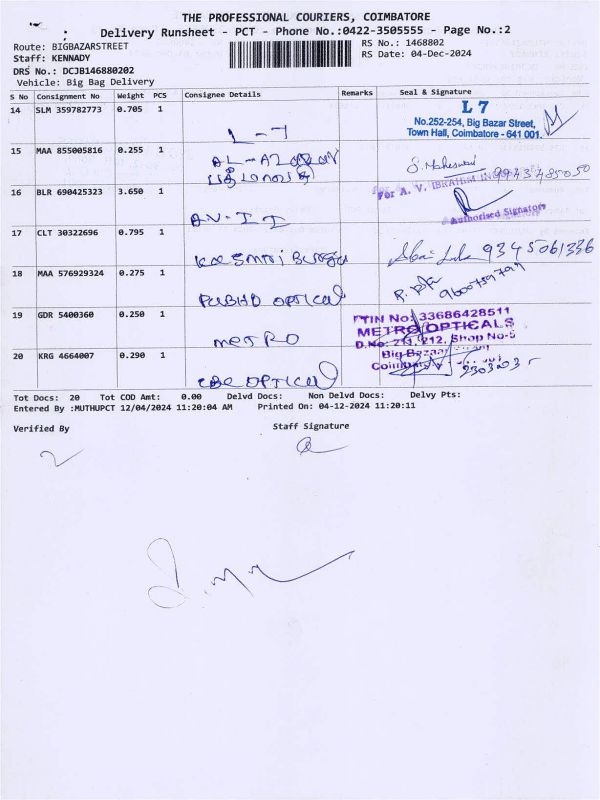 THE PROFESSIONAL COURIERS, COIMBATORE
Delivery Runsheet - PCT - Phone No.:0422-3505555 - Page No.:2
Route: BIGBAZARSTREET RS No.: 1468802
Staff: KENNADY RS Date: 04-Dec-2024
DRS No.: DCJB146880202
Vehicle: Big Bag Delivery
S No Consignment No Weight PCS Consignee Details Remarks Seal & Signature
14 SLM 359782773 0.705 1
L-7
L 7
No.252-254, Big Bazar Street,
Town Hall, Coimbatore - 641 001.
15 MAA 855005816 0.255 1
16 BLR 690425323 3.650 1
For A. V. IBRAHIM
Authorised Signatory
17 CLT 30322696 0.795 1
9345061336
18 MAA 576929324 0.275 1
OPTICAL
19 GDR 5400360 0.250 1
METRO
TIN No: 33686428511
METRO OPTICALS
D.No: 211, 212, Shop No-5
Big Bazaar
20 KRG 4664007 0.290 1
CBE OPTICAL
Tot Docs: 20 Tot COD Amt: 0.00 Delvd Docs: Non Delvd Docs: Delvy Pts:
Entered By :MUTHUPCT 12/04/2024 11:20:04 AM Printed On: 04-12-2024 11:20:11
Verified By Staff Signature